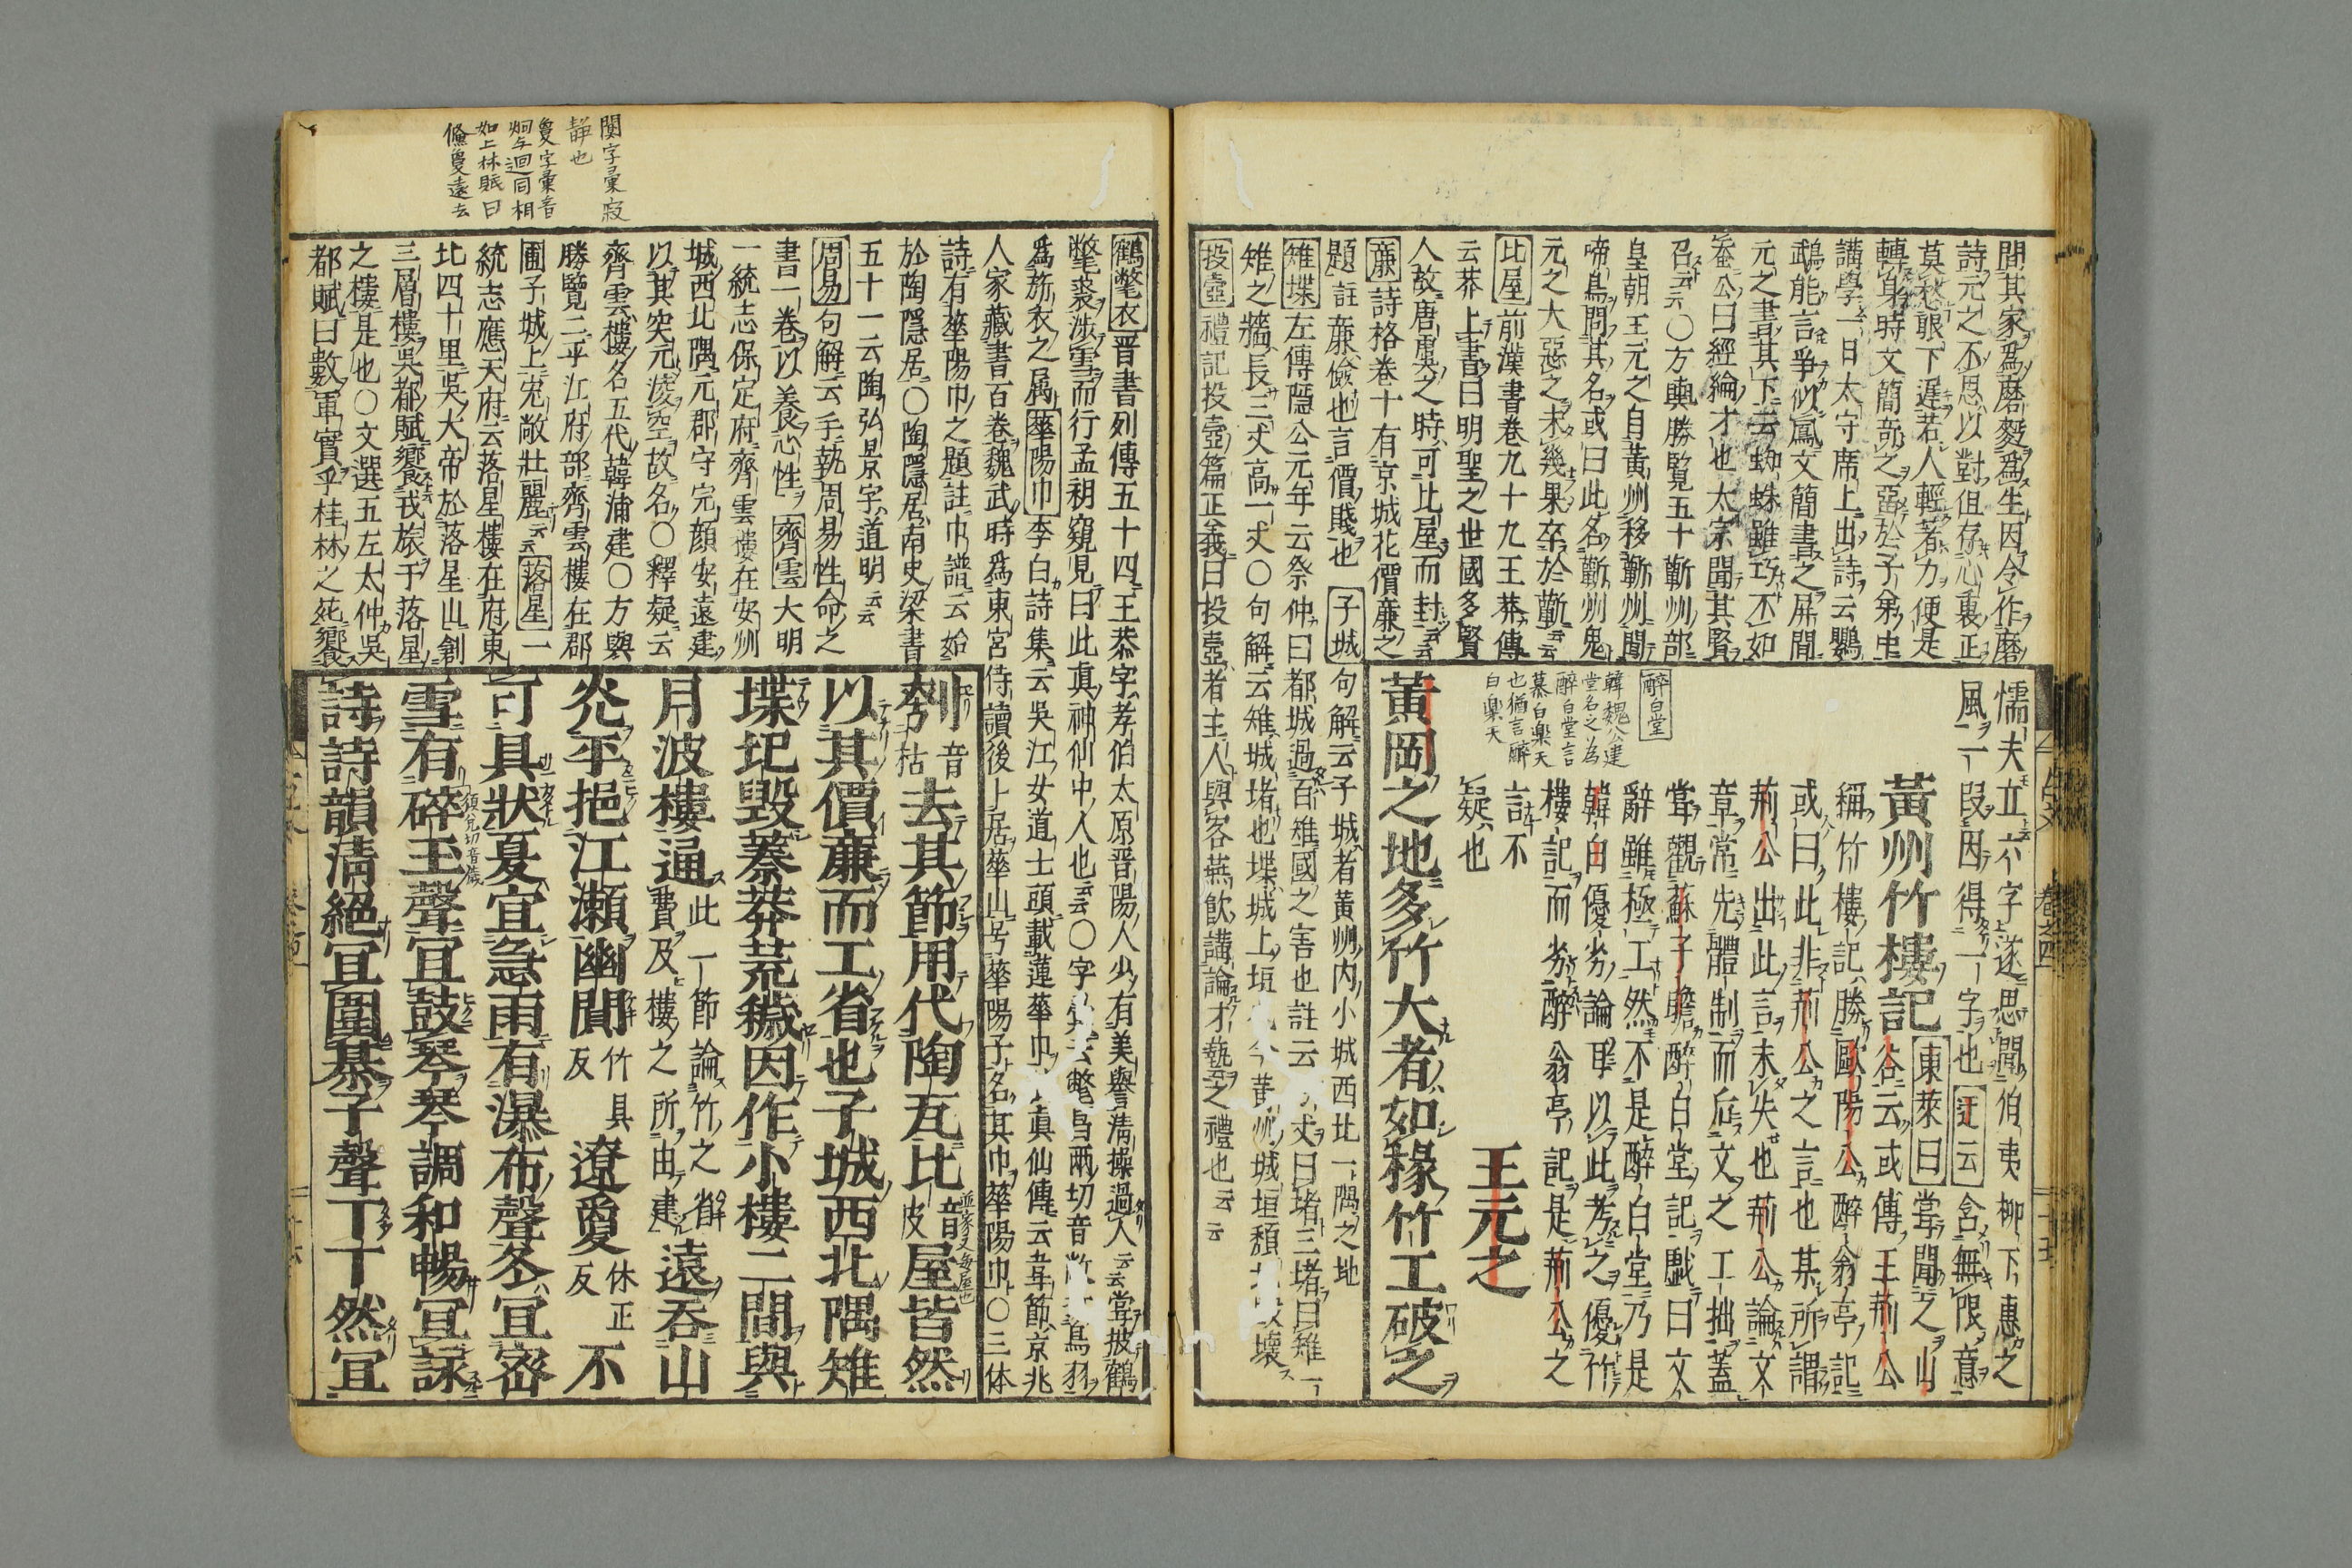 間其家爲磨麪爲生因令作磨
詩元之不思以對但存心裏正
莫愁眼下遲若人輕著力便是
轉身時文簡奇之留於子弟中
講學一日太守席上出詩云鸚
鵡能言爭似鳳文簡書之屏間
元之書其下云蜘蛛雖巧不如
蚕公曰經綸才也太宗聞其賢
召云云〇方輿勝覧五十蘄州部
皇朝王元之自黃州移蘄州聞
啼鳥問其名或曰此名蘄州鬼
元之大惡之未幾果卒於蘄云云
比屋前漢書卷九十九王莽傳
云莽上書曰明聖之世國多賢
人故唐虞之時可比屋而封云云
廉詩格卷十有京城花價廉之
題註廉儉也言價賤也 子城句解云子城者黃州內小城西北一隅之地
雉堞左傳隱公元年云祭仲曰都城過百雉國之害也註云 丈曰堵三堵曰雉一
雉之牆長三丈高一丈〇句解云雉城堵也堞城上垣也今黃州城垣頽 毀壞
投壺禮記投壺篇正義曰投壺者主人與客燕飲講論才藝之禮也云云
懦夫立六字遂思聞伯夷柳下惠之
風一段因得一字也 迂云 含無限意
黃州竹樓記 東萊曰嘗聞之山
谷云或傳王荊公
稱竹樓記勝歐陽公醉翁亭記
或曰此非荊公之言也某所謂
荊公出此言未失也荊公論文
章常先體制而后文之工拙蓋
嘗觀蘇子瞻醉白堂記戲曰文
辭雖極工然不是醉白堂乃是
韓白優劣論耳以此考之優竹
樓記而劣醉翁亭記是荊公之
言不
疑也
醉白堂
韓魏公建
堂名之為
醉白堂言
慕白樂天
也猶言醉
白樂天
王元之
黃岡之地多竹大者如椽竹工破之
鶴氅衣晋書列傳五十四王恭字孝伯太原晋陽人少有美譽淸操過人云云嘗披鶴
氅裘渉雪而行孟昶窺見曰此眞神仙中人也云云〇字彙云氅昌兩切音敞 鳥羽
爲旂衣之属 華陽巾李白詩集云吳江女道士頭載蓮華巾 眞仙傳云韋節京兆
人家藏書百卷魏武時爲東宮侍讀後卜居華山号華陽子名其巾華陽巾〇三体
詩有華陽巾之題註巾譜云始
於陶隱居〇陶隱居南史梁書
五十一云陶弘景字道明云云
周易句解云手執周易性命之
書一卷以養心性 齊雲大明
一統志保定府齊雲樓在安州
城西北隅元郡守完顏安遠建
以其突元凌空故名〇釋疑云
齊雲樓名五代韓浦建〇方輿
勝覽二平江府部齊雲樓在郡
圃子城上宏敞壯麗云云 落星一
統志應天府云落星樓在府東
北四十里吳大帝於落星山創
三層樓吳都賦饗戎旅于落星
之樓是也〇文選五左太仲吳
都賦曰數軍實乎桂林之苑饗
刳音枯去其節用代陶瓦比音皮屋皆然
以其價廉而工省也子城西北隅雉
堞圯毀蓁莽荒穢因作小樓二間與
月波樓通此一節論竹之省費及樓之所由建遠吞山
光平挹江瀬幽闃竹具反遼夐休正反不
可具狀夏宜急雨有瀑布聲冬宜密
雪有碎玉聲宜鼓琴琴調和暢宜詠
詩詩韻淸絕宜圍棊子聲丁丁然宜
闃字彙寂
靜也
夐字彙音
烱与迥同相
如上林賦曰
儵夐遠去